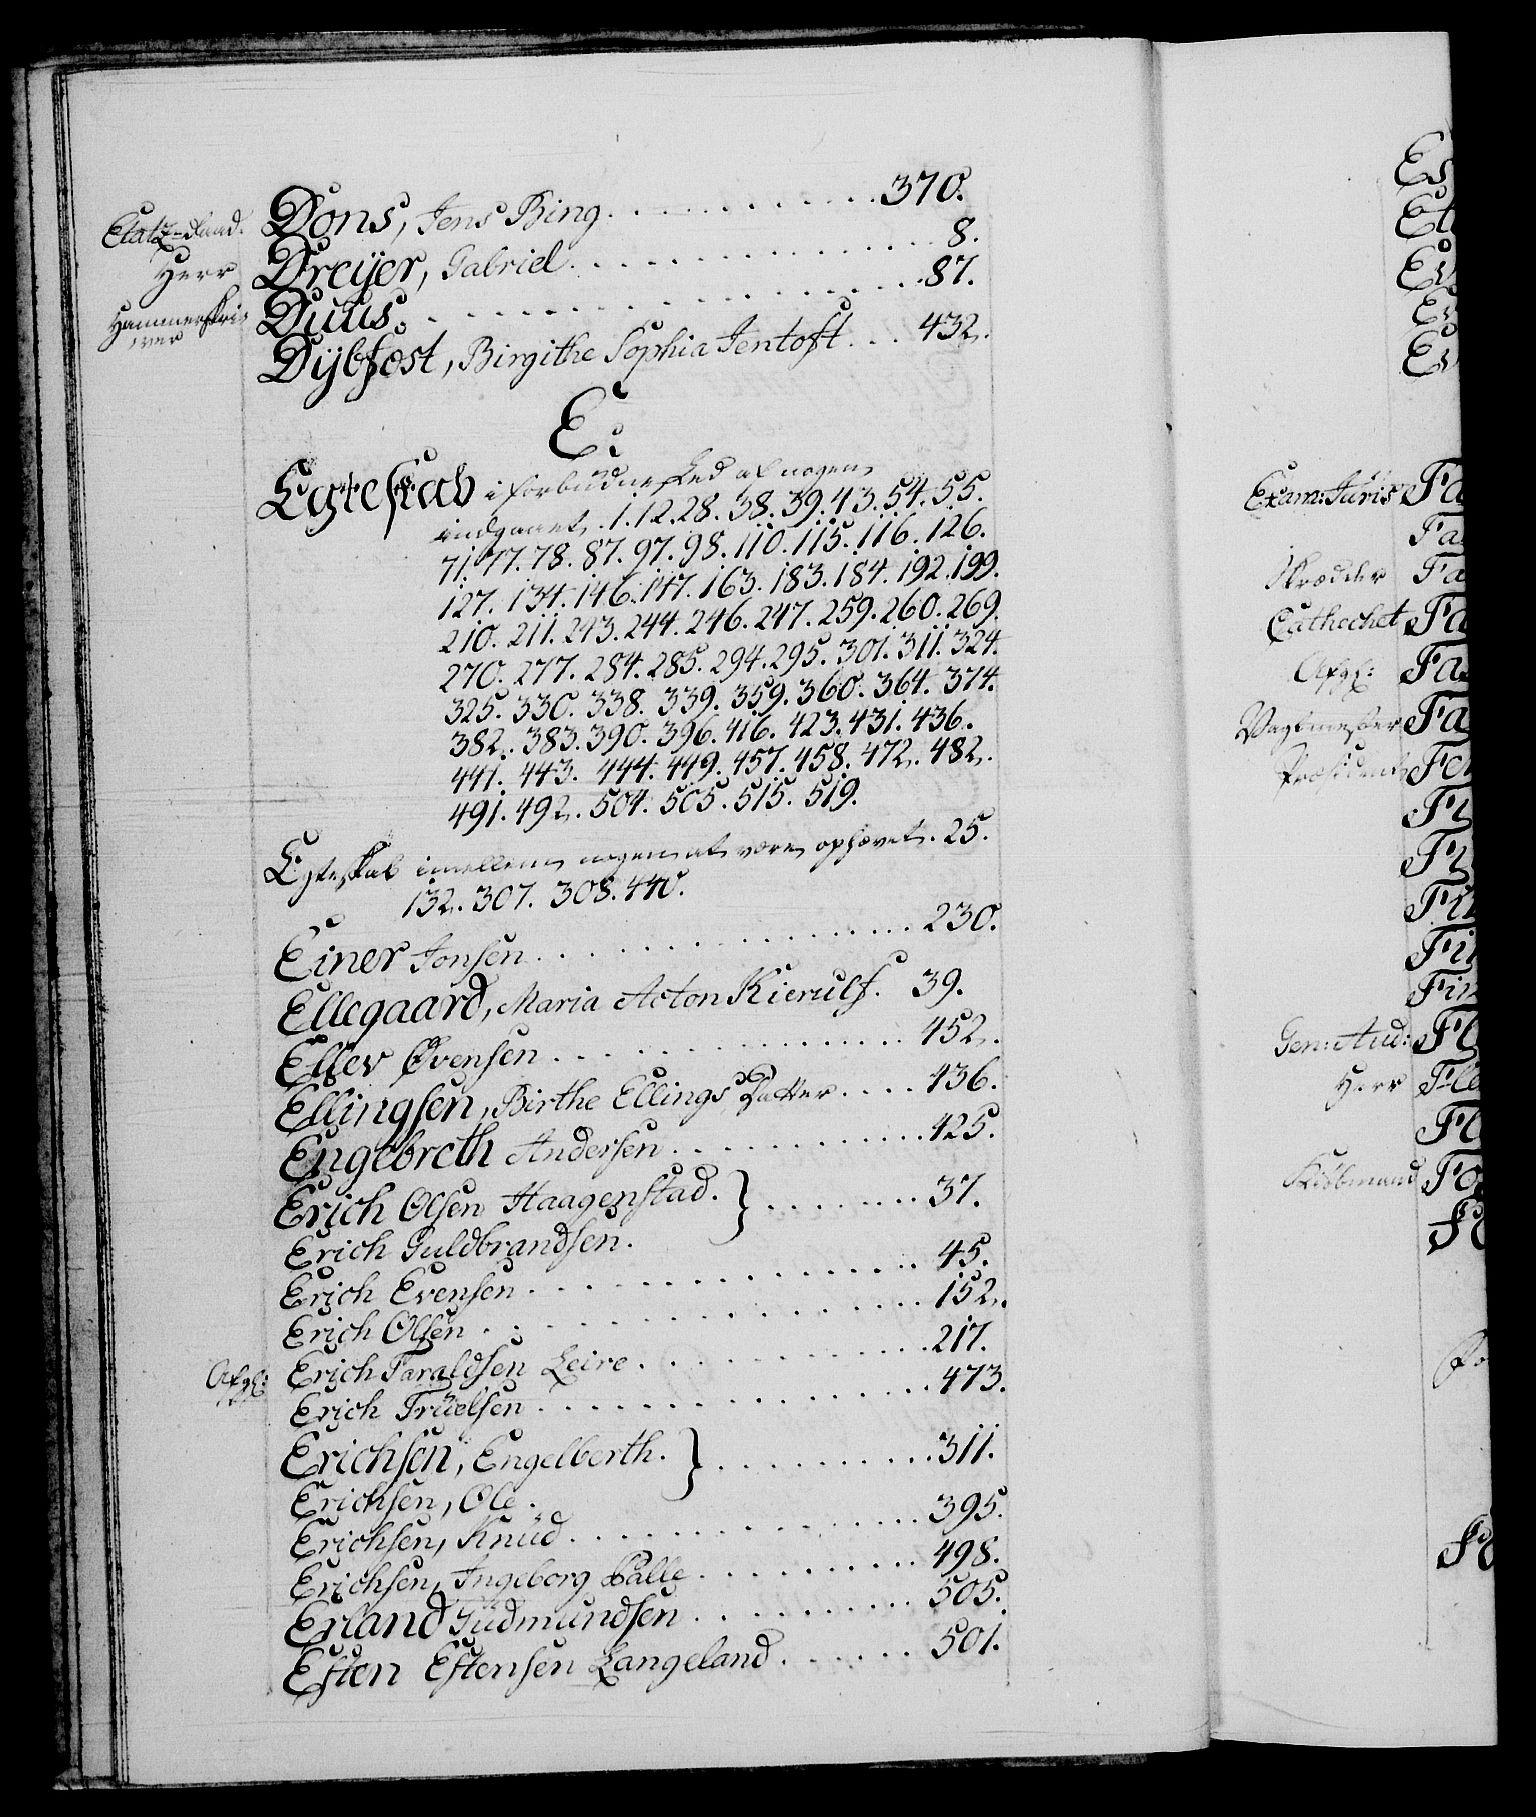 Etatz-Raad. Dons, Jens Bing . . . . . . . . . . . . 370.
Herr Dreÿer, Gabriel . . . . . . . . . . . . . 8.
Duus. . . . . . . . . . . . . . . . . 87.
Hammerskri-
ver Dÿbfest, Birgithe Sophia Jentoft . . . 432.
E.
Egteskab i forbudne Led af nogen
indgaaet. 1. 12. 28. 38. 39. 43. 54. 55.
71. 77. 78. 87. 97. 98. 110. 115. 116. 126.
127. 134. 146. 147. 163. 183. 184. 192. 199.
210. 211. 243. 244. 246. 247. 259. 260. 269.
270. 277. 284. 285. 294. 295. 301. 311. 324.
325. 330. 338. 339. 359. 360. 364. 374.
382. 383. 390. 396. 416. 423. 431. 436.
441. 443. 444. 449. 457. 458. 472. 482.
491. 492. 504. 505. 515. 519.
Egteskab imellem nogen at være ophævet. 25.
132. 307. 308. 440.
Einer Jonsen . . . . . . . . . . . . . . 230.
Ellegaard, Maria Acton Kierulf. 39.
Ellev Øvensen . . . . . . . . . . . . . . 452.
Ellingsen, Birthe Ellings Datter . . . . 436.
Engebreth Andersen . . . . . . . . . . 425.
Erich Olsen Haagenstad. } . . . . . . . . 37.
Erich Guldbrandsen.
Erich Evensen . . . . . . . . . . . . . . 45.
Erich Olsen . . . . . . . . . . . . . . . 152.
Afgl: Erich Taraldsen Leire . . . . . . . . . . 217.
Erich Truelsen . . . . . . . . . . . . . . 473.
Erichsen, Engelberth. } . . . . . . . . . . 311.
Erichsen, Ole.
Erichsen, Knud . . . . . . . . . . . . . 395.
Erichsen, Ingeborg Palle . . . . . . . . . 498.
Erland Gudmundsen . . . . . . . . . . 505.
Esten Estensen Langeland . . . . . . . 501.
Ev
Ev
Ev
Exam: Juris Fa
Fa
Skrædder Fa
Cathechet Fa
Afgl: Fa
Vagtmester Fa
Præsident
Fi
Fin
Gen: Aud: Fl
Herr Fle
Fl
Kiøbmand Fo